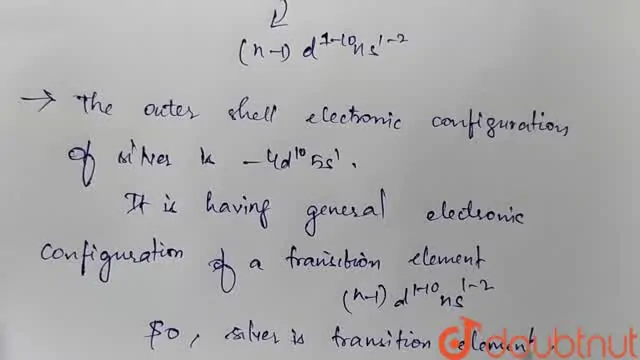 (n-1) d¹⁻¹⁰ns¹⁻²
→ The outer shell electronic configuration
of silver is - 4d¹⁰5s¹.
It is having general electronic
configuration of a transition element
(n-1) d¹⁻¹⁰ ns¹⁻²
So, silver is transition element.
doubtnut